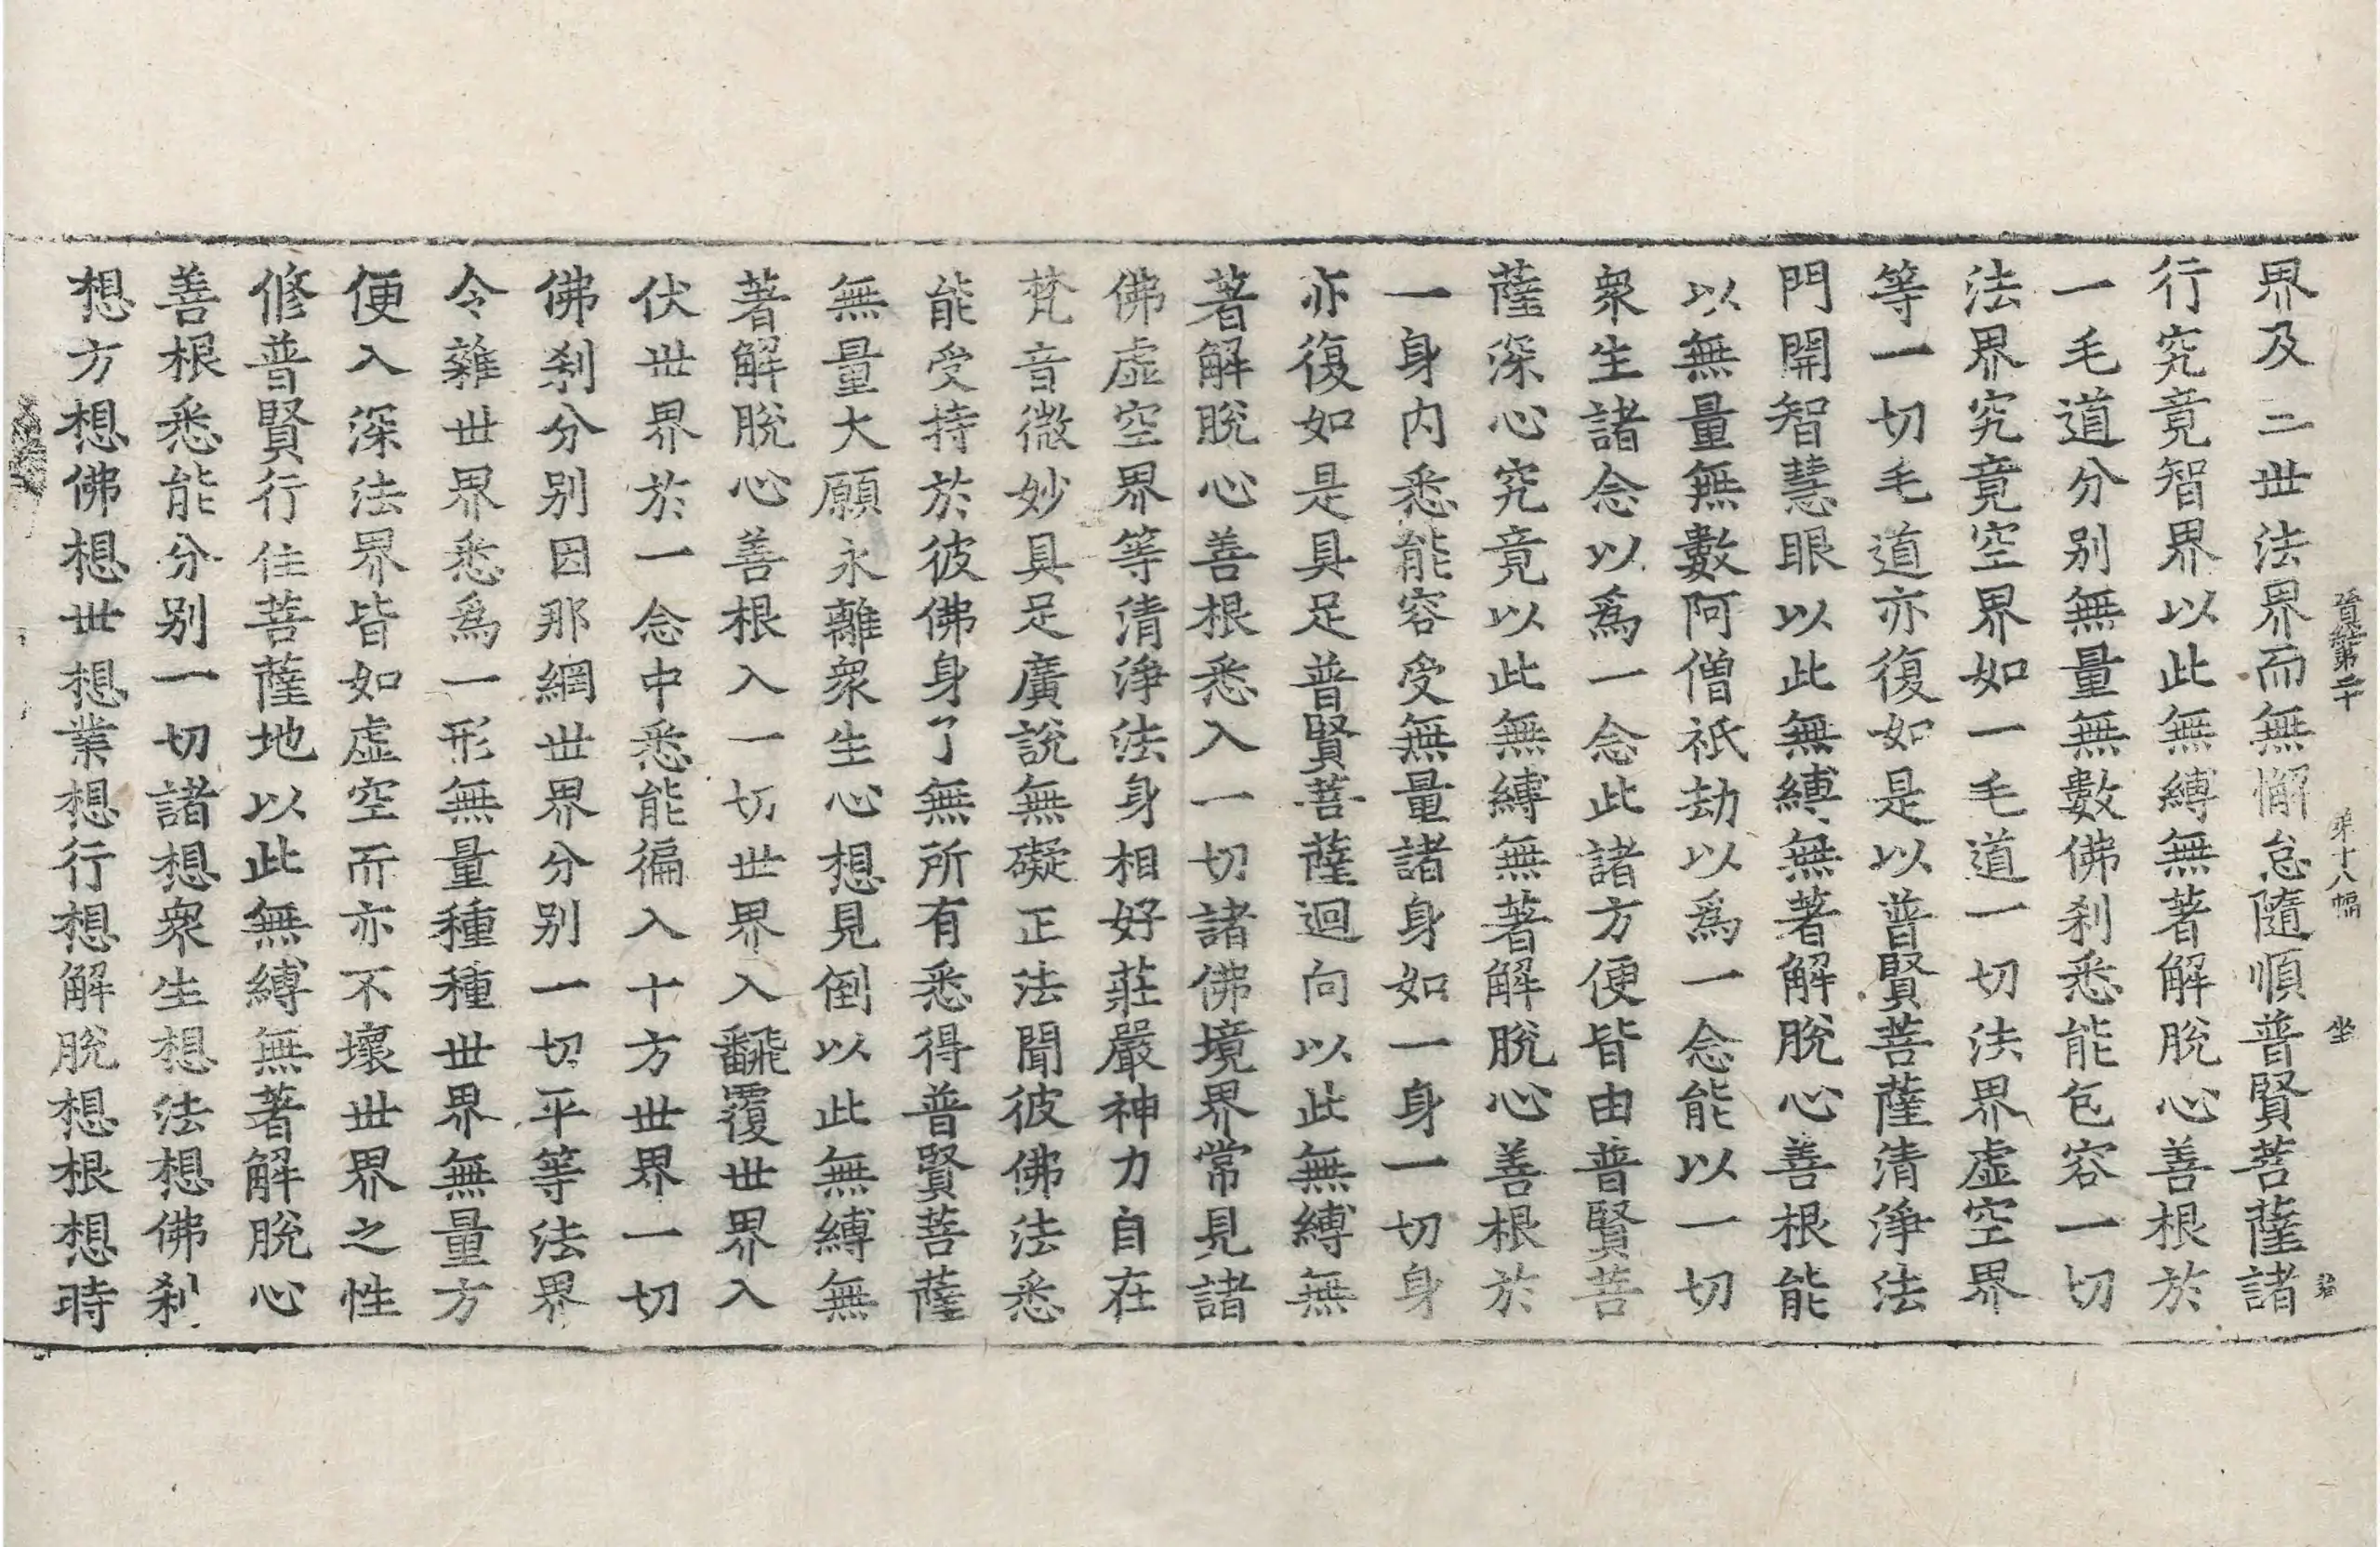 界及二世法界而無懈怠隨順普賢菩薩諸
行究竟智界以此無縛無著解脫心善根於
一毛道分別無量無數佛刹悉能包容一切
法界究竟空界如一毛道一切法界虛空界
等一切毛道亦復如是以普賢菩薩清淨法
門開智慧眼以此無縛無著解脫心善根能
以無量無數阿僧祇劫以爲一念能以一切
衆生諸念以爲一念此諸方便皆由普賢菩
薩深心究竟以此無縛無著解脫心善根於
一身內悉能容受無量諸身如一身一切身
亦復如是具足普賢菩薩迴向以此無縛無
著解脫心善根悉入一切諸佛境界常見諸
佛虛空界等清淨法身相好莊嚴神力自在
梵音微妙具足廣說無礙正法聞彼佛法悉
能受持於彼佛身了無所有悉得普賢菩薩
無量大願永離衆生心想見倒以此無縛無
著解脫心善根入一切世界入翻覆世界入
伏世界於一念中悉能徧入十方世界一切
佛刹分別因那網世界分別一切平等法界
令雜世界悉爲一形無量種種世界無量方
便入深法界皆如虛空而亦不壞世界之性
修普賢行住菩薩地以此無縛無著解脫心
善根悉能分別一切諸想衆生想法想佛刹
想方想佛想世想業想行想解脫想根想時
第十八幅